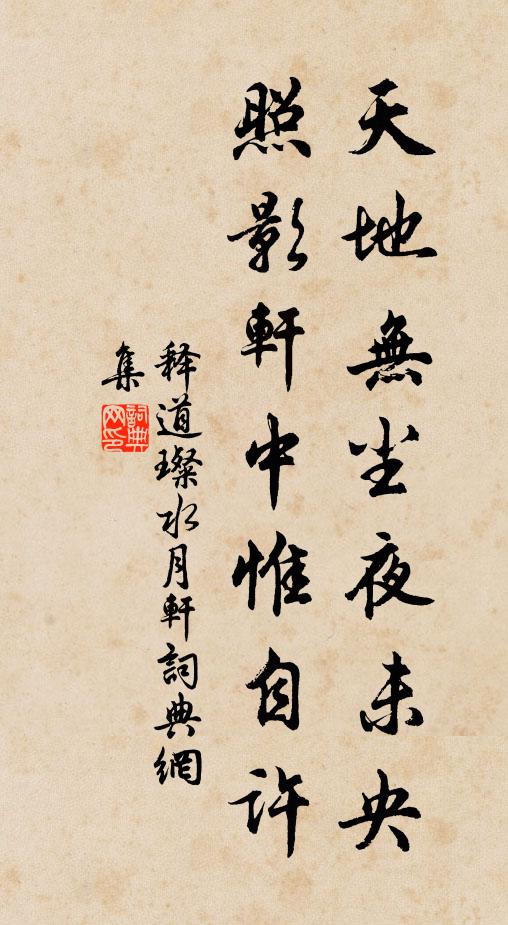 天地無尘夜未央
照影軒中惟自許
释道璨水月軒詞典網
集
詞典
网印